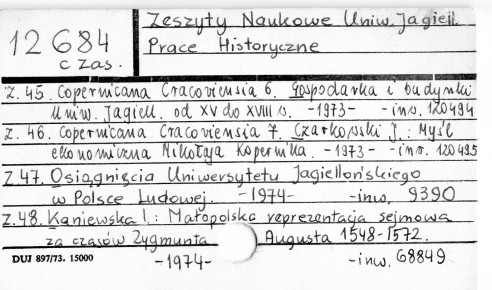 12684
czas.
Zeszyty Naukowe Uniw. Jagiell.
Prace Historyczne
z. 45. Copernicana Cracoviensia 6. Gospodarka i budynki
Uniw. Jagiell. od XV do XVIII w. -1973- -inw. 120494
z. 46. Copernicana Cracoviensia 7. Czartkowski J.: Myśl
ekonomiczna Mikołaja Kopernika. -1973- -inw. 120495
z. 47. Osiągnięcia Uniwersytetu Jagiellońskiego
w Polsce Ludowej. -1974- -inw. 9390
z. 48. Kaniewska I.: Małopolska reprezentacja sejmowa
za czasów Zygmunta Augusta 1548-1572.
-1974- -inw. 68849
DUJ 897/73. 15000